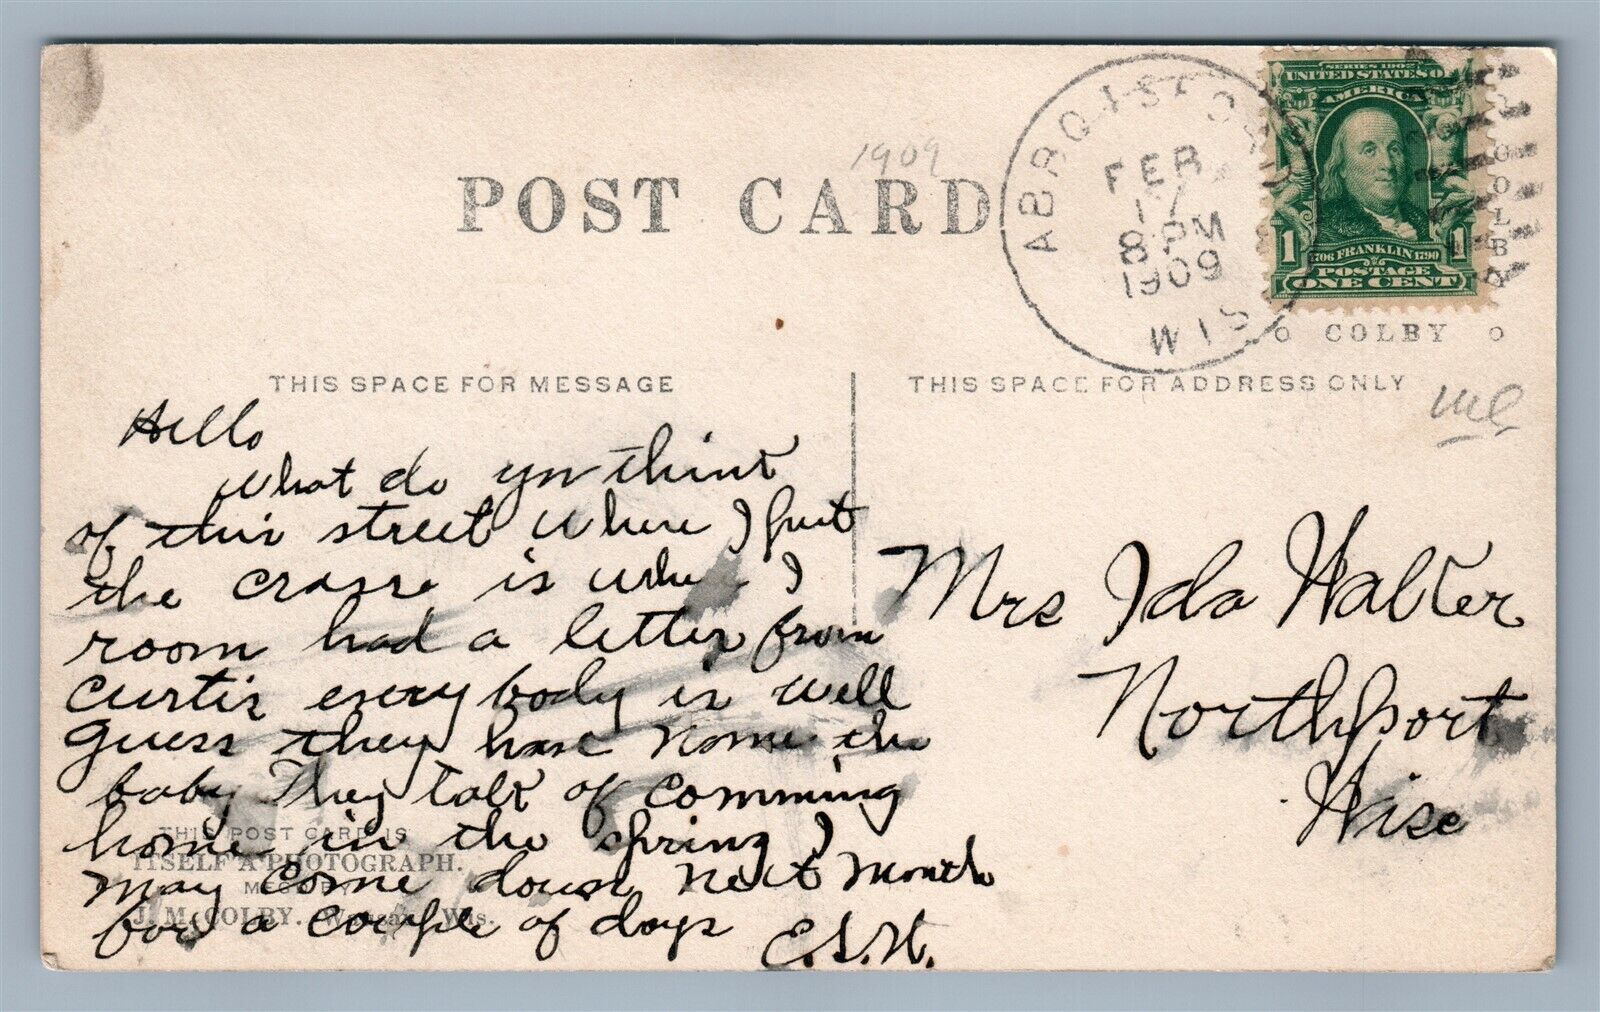 1909
POST CARD
ABBOTSFORD
FEB
17
8 PM
1909
WIS
SERIES 1902
UNITED STATES OF
AMERICA
1 1706 FRANKLIN 1790 1
POSTAGE
ONE CENT
COLBY
o COLBY o
THIS SPACE FOR MESSAGE
THIS SPACE FOR ADDRESS ONLY
Hello
What do you think
of this street where I put
the crosse is where I
room had a letter from
Curtis everybody is well
guess they have name the
baby They talk of comming
home in the spring I
may come down next month
for a couple of days
E.S.W.
Mrs Ida Walter
Northport
Wise
THIS POST CARD IS
ITSELF A PHOTOGRAPH.
MADE BY
J. M. COLBY. Wausau, Wis.